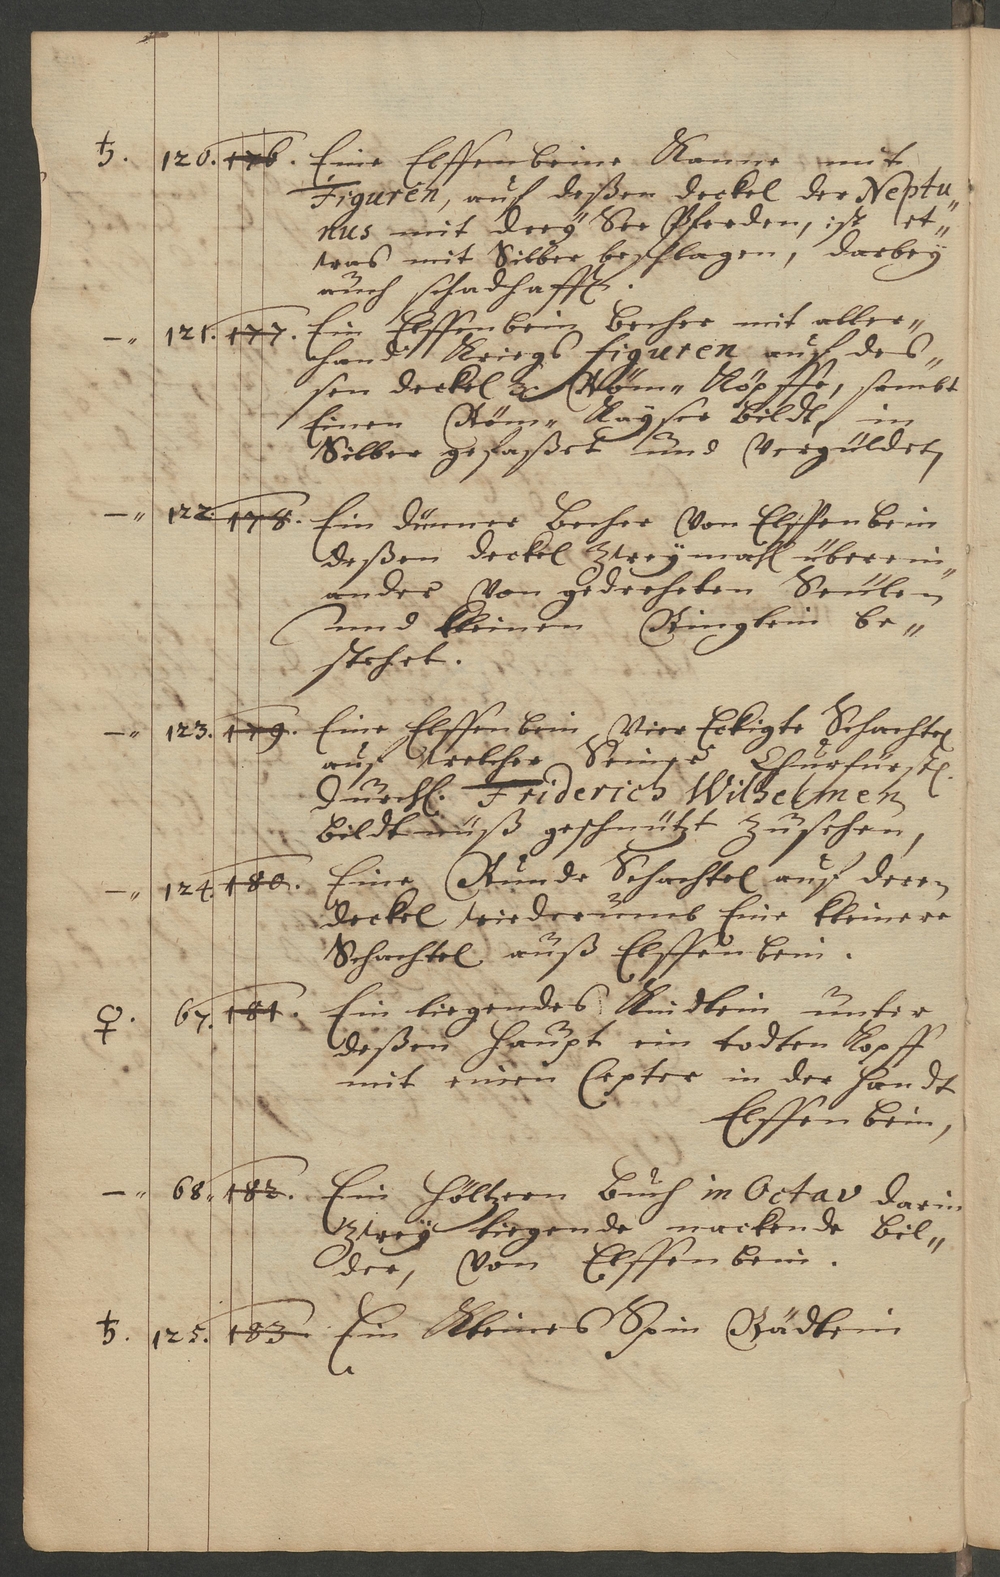 ♄. 120. 176. Eine Elffenbeine Kanne mit
Figuren, auf deßen deckel der Neptu„
nus mit dreÿ See Pferden, ist et„
was mit Silber beschlagen, darbeÿ
auch schadhafft.
—„ 121. 177. Ein Elffenbein Becher mit aller„
hand Kriegs figuren auf des„
sen deckel 2. Röm„ Köpffe, sambt
Einen Röm„ Kaÿser Bildt, in
Silber gefaßet und Vergüldet,
—„ 122. 178. Ein dünner Becher Von Elffenbein
deßen deckel Zweÿmahl überein„
ander Von gedreheten Seülen
und kleinen Ringlein be„
stehet.
—„ 123. 179. Eine Elffenbein Vier Eckigte Schachtel
auf welcher Seiner Churfürstl.
Durchl. Friderich Wilhelmen
bildtnüß geschnützt zusehen,
—„ 124. 180. Eine Runde Schachtel auf deren
deckel wiederumb Eine kleinere
Schachtel auß Elffenbein.
♀. 67. 181. Ein liegendes Kindlein unter
deßen Haupt ein todten Kopff
mit einen Cepter in der Handt
Elffenbein,
—„ 68„ 182. Ein Höltzern Buch in Octav darin
Zweÿ liegende nackende Bil„
der, Von Elffenbein.
♄. 125. 183. Ein Kleines Spin Rädlein